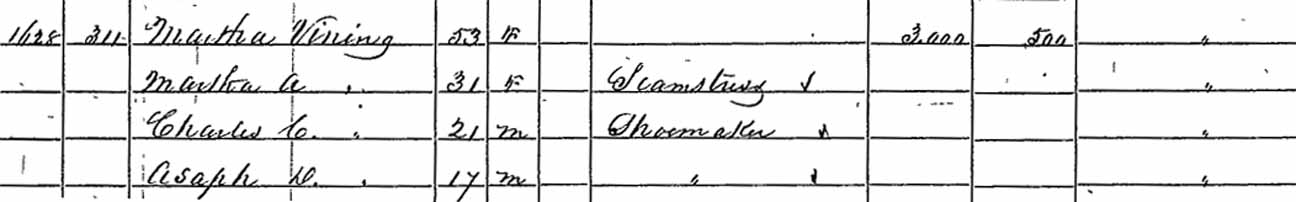 1628 311 Martha Vining 53 F 3,000 500 "
Martha A " 31 F Seamstress "
Charles C. " 21 m Shoemaker "
Asaph D. " 17 m " "